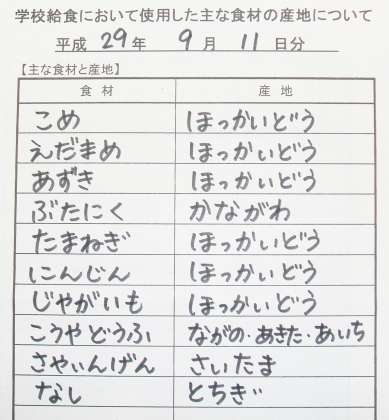 学校給食において使用した主な食材の産地について
平成 29 年 9 月 11 日分
【主な食材と産地】
食材 産地
こめ ほっかいどう
えだまめ ほっかいどう
あずき ほっかいどう
ぶたにく かながわ
たまねぎ ほっかいどう
にんじん ほっかいどう
じゃがいも ほっかいどう
こうやどうふ ながの・あきた・あいち
さやいんげん さいたま
なし とちぎ